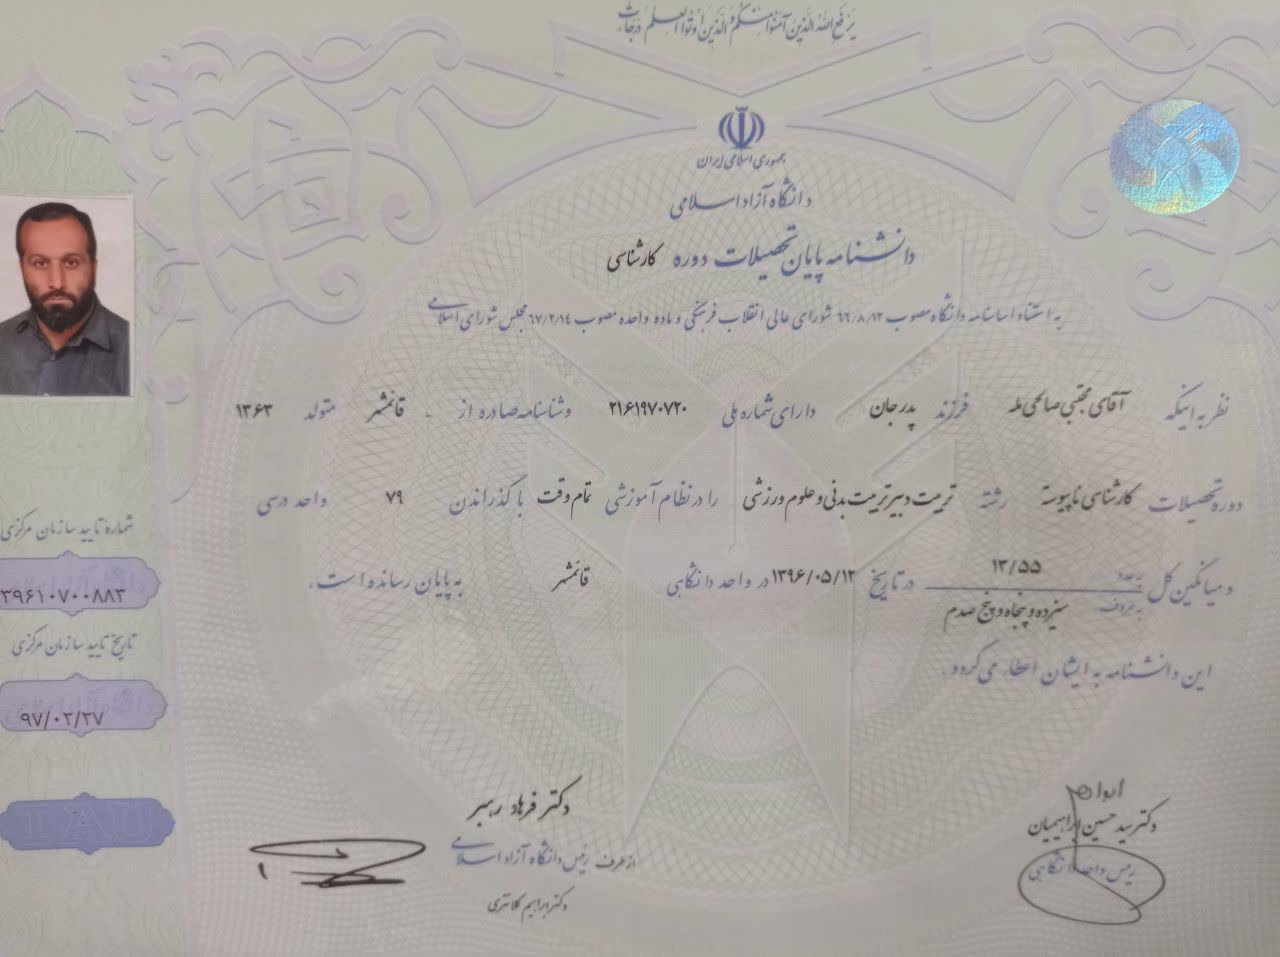 یرفع الله الذین آمنوا منکم و الذین اوتوا العلم درجات
جمهوری اسلامی ایران
دانشگاه آزاد اسلامی
دانشنامه پایان تحصیلات دوره کارشناسی
به استناد اساسنامه دانشگاه مصوب ۶۶/۸/۱۲ شورای عالی انقلاب فرهنگی و ماده واحده مصوب ۶۷/۲/۱۴ مجلس شورای اسلامی
نظر به اینکه آقای مجتبی صالحی مله فرزند پدرجان دارای شماره ملی ۲۱۶۱۹۷۰۷۲۰ و شناسنامه صادره از قائمشهر متولد ۱۳۶۳
دوره تحصیلات کارشناسی ناپیوسته رشته تربیت دبیر تربیت بدنی و علوم ورزشی را در نظام آموزشی تمام وقت با گذراندن ۷۹ واحد درسی
و میانگین کل به عدد ۱۳/۵۵ به حروف سیزده و پنجاه و پنج صدم در تاریخ ۱۳۹۶/۰۵/۱۲ در واحد دانشگاهی قائمشهر به پایان رسانده است.
این دانشنامه به ایشان اعطاء می گردد.
شماره تایید سازمان مرکزی
۳۹۶۱۰۷۰۰۸۸۳
تاریخ تایید سازمان مرکزی
۹۷/۰۲/۲۷
IAU
دکتر سید حسین ابراهیمیان
رئیس واحد دانشگاهی
دکتر فرهاد رهبر
از طرف رئیس دانشگاه آزاد اسلامی
دکتر ابراهیم کلانتری